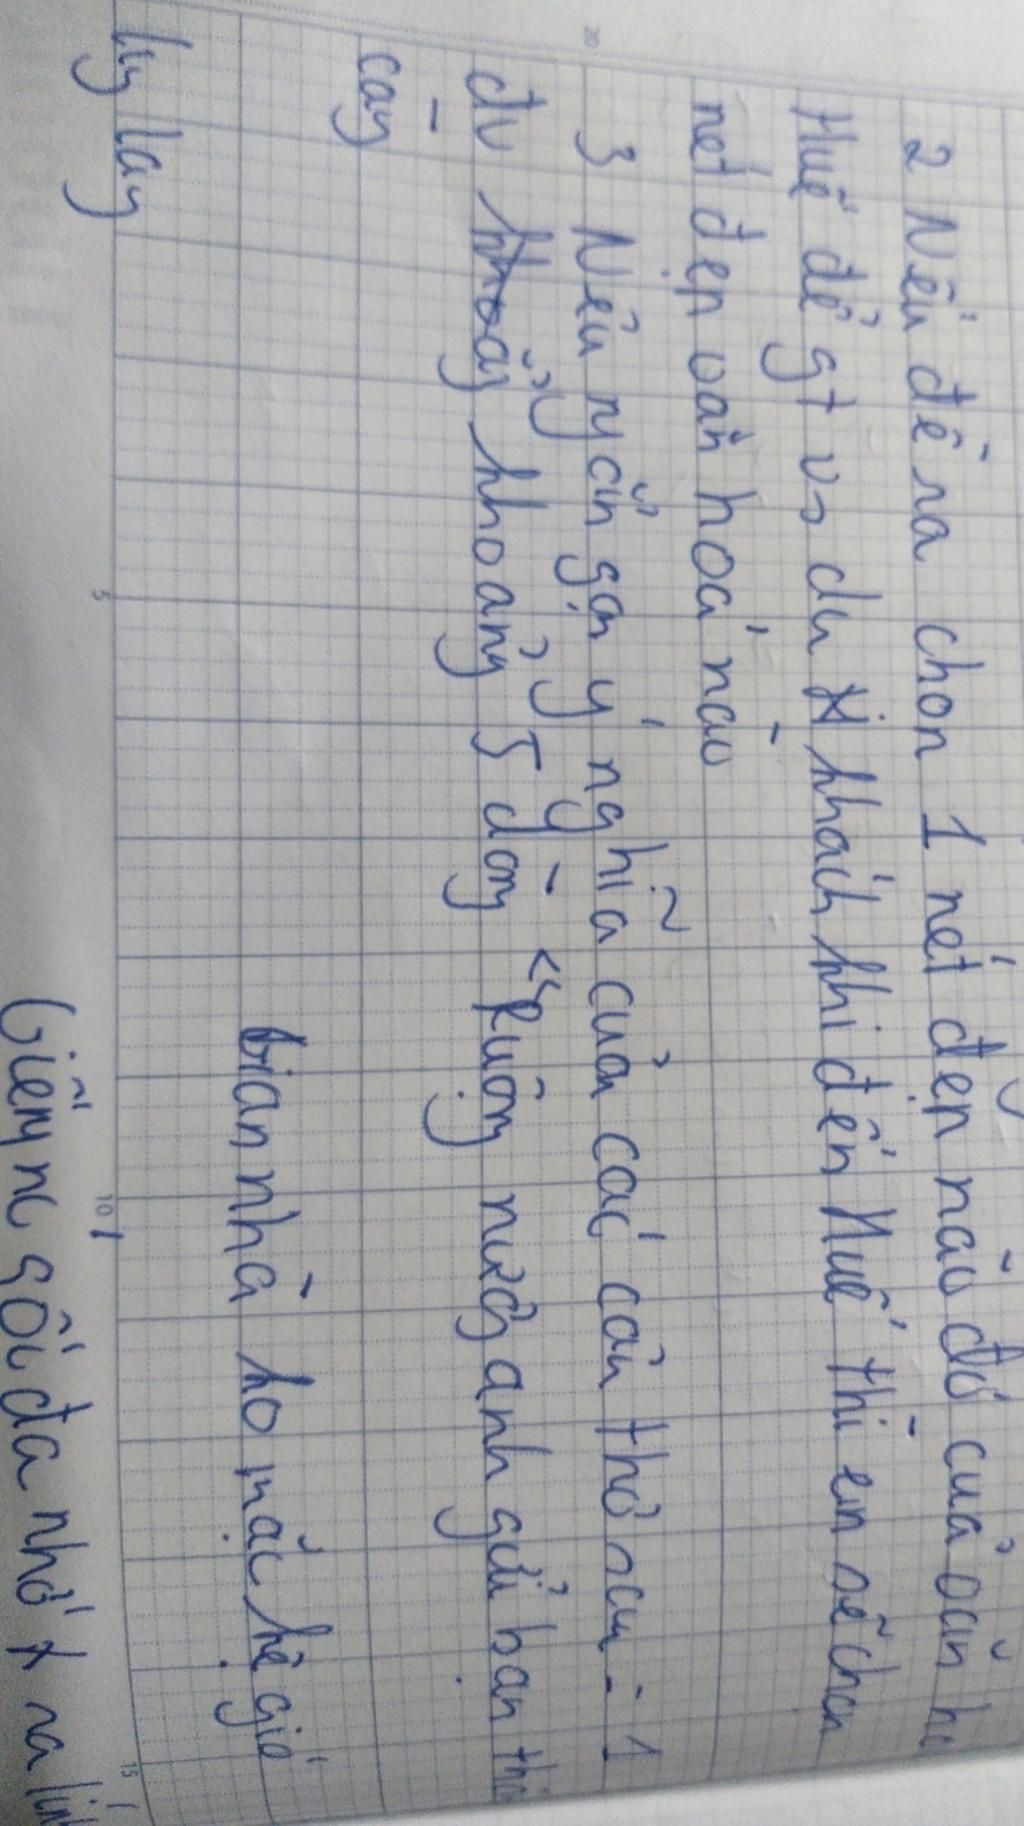 2 Nếu để ra chọn 1 nét đẹp nào đó của văn
Huế để gt vs du khách khi đến Huế thì em sẽ chọn
nét đẹp văn hoá nào
3 Nêu ngắn gọn ý nghĩa của các câu thơ sau : 1
đv khoảng 5 dòng : "Ruộng nương anh gửi bạn thân
cày
Gian nhà ko mặc kệ gió
lug lay
Giếng nc gốc đa nhớ ng ra lính